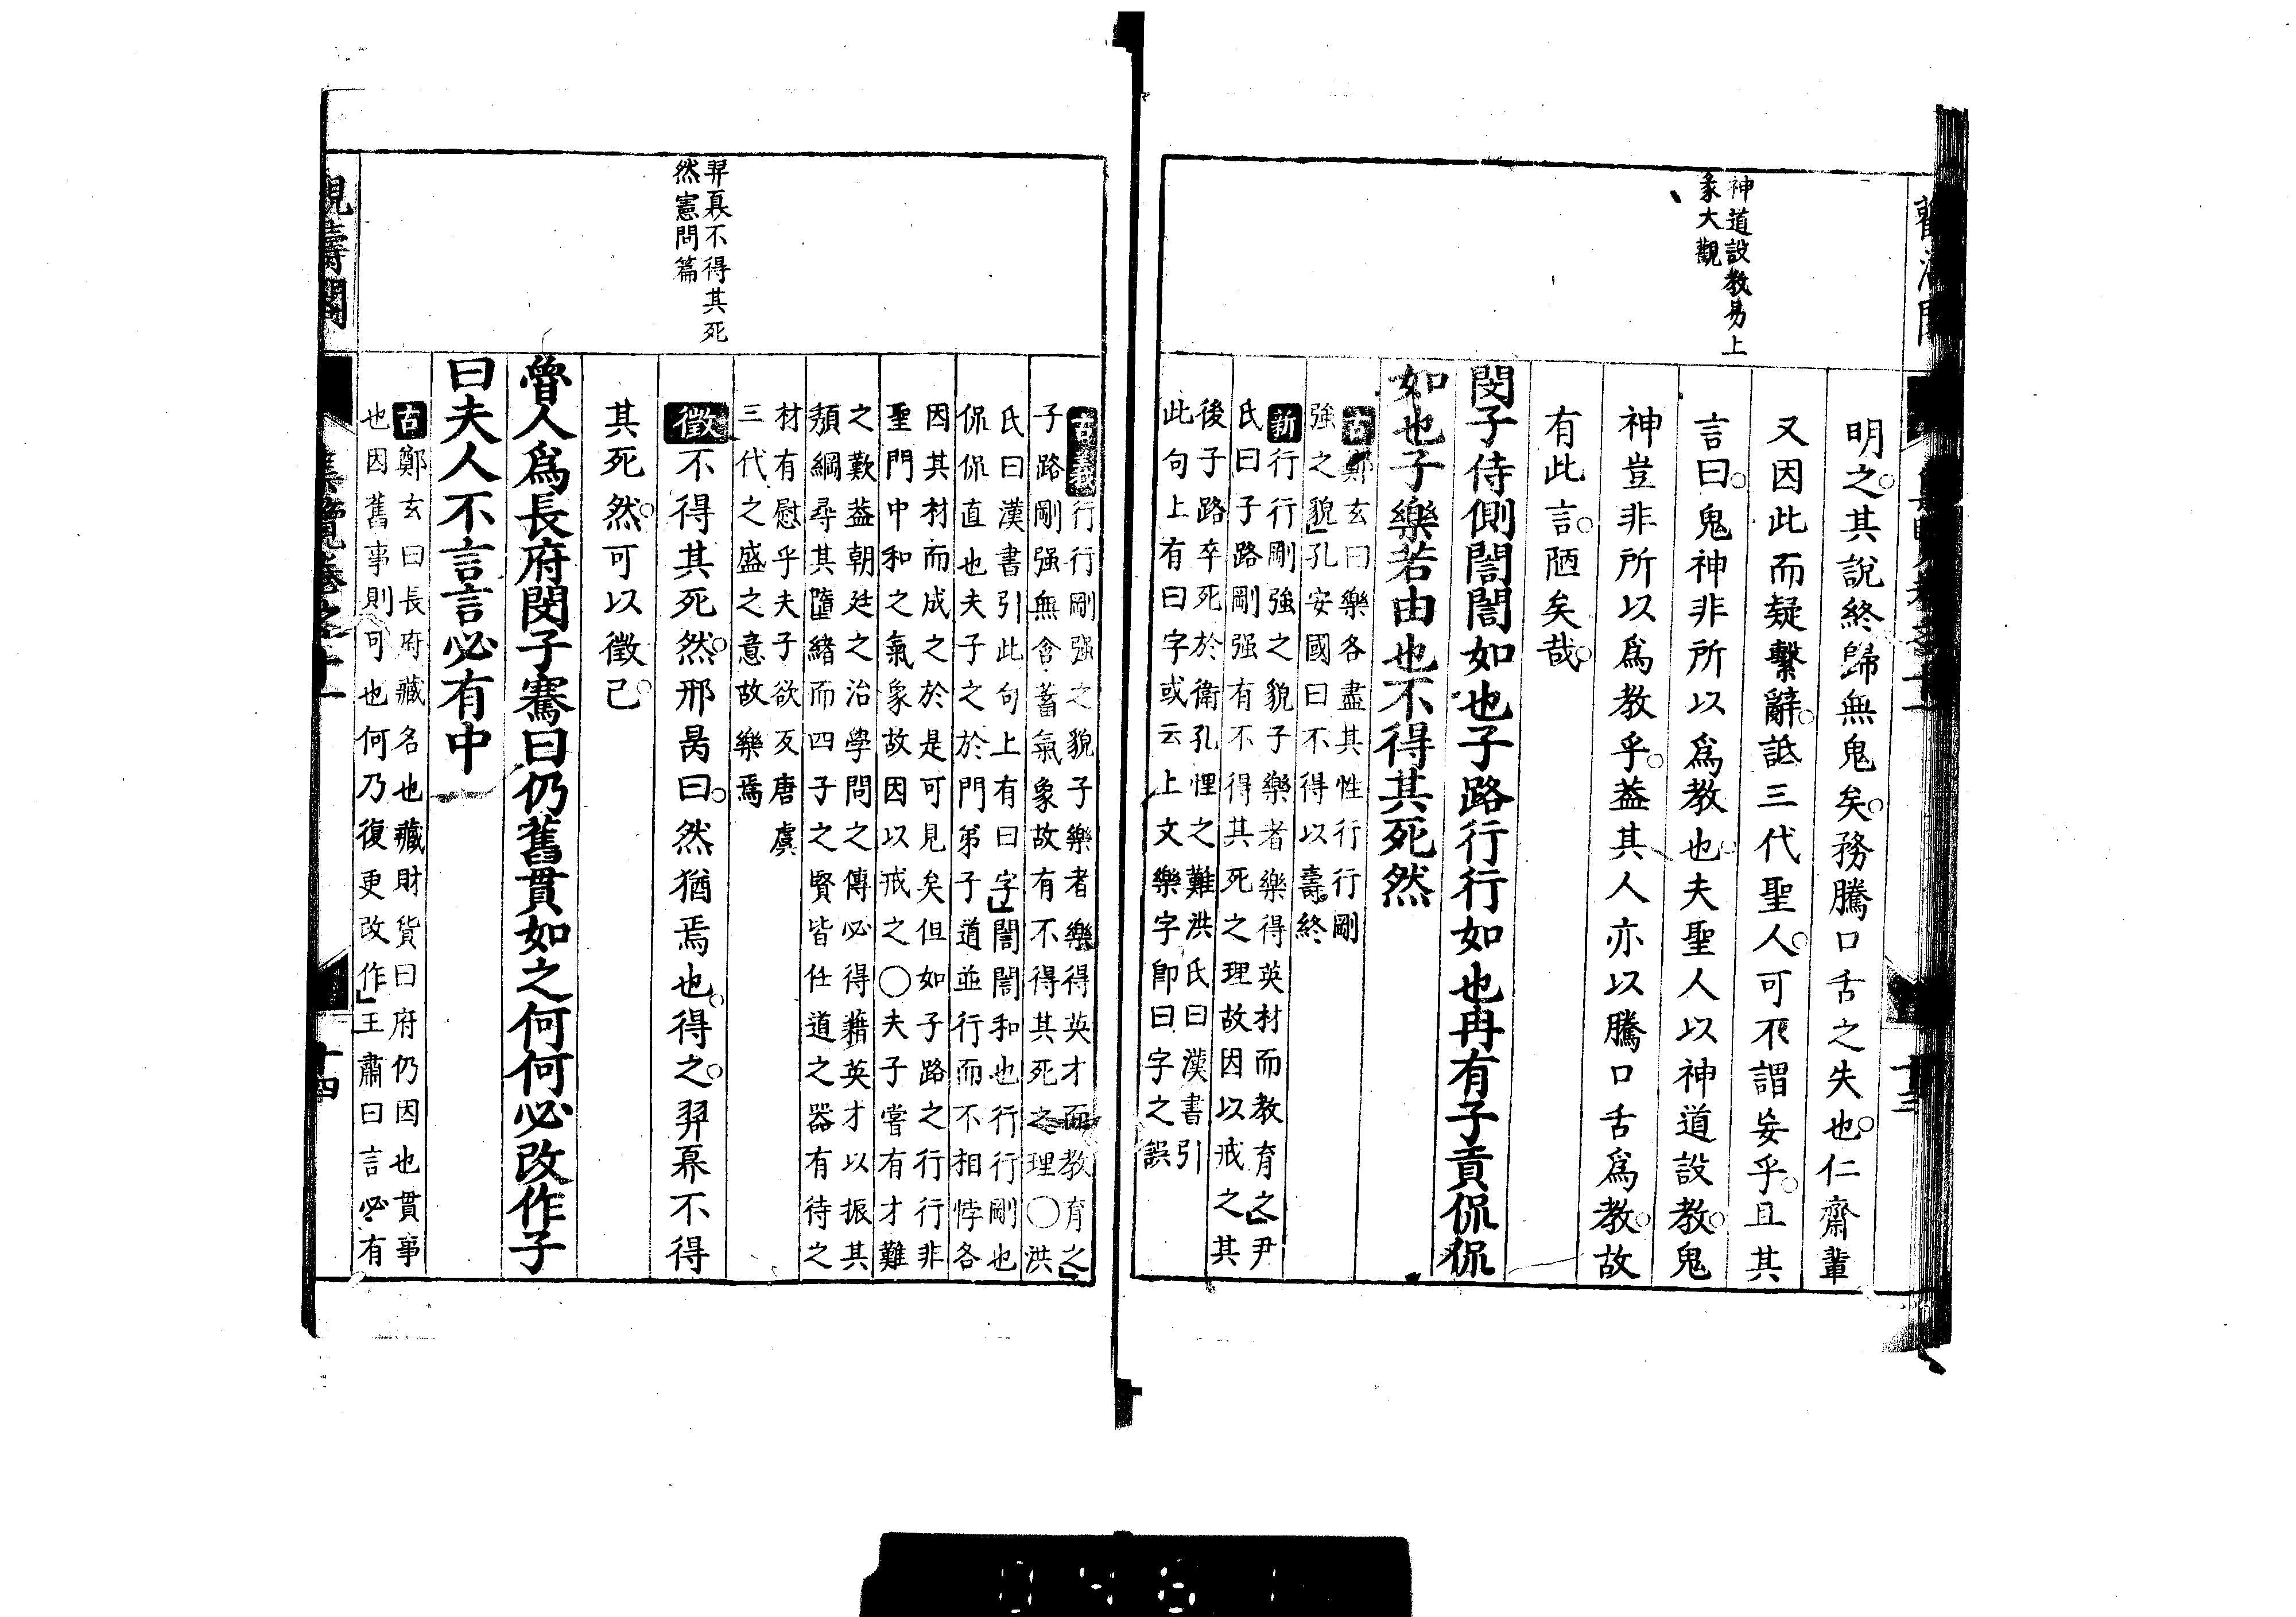 神道設教易上
彖大觀
明之其說終歸無鬼矣務騰口舌之失也仁齋輩
又因此而疑繫辭詆三代聖人可不謂妄乎且其
言曰鬼神非所以爲教也夫聖人以神道設教鬼
神豈非所以爲教乎葢其人亦以騰口舌爲教故
有此言陋矣哉
閔子侍側誾誾如也子路行行如也冉有子貢侃侃
如也子樂若由也不得其死然
古鄭玄曰樂各盡其性行行剛
強之貌孔安國曰不得以壽終
新行行剛強之貌子樂者樂得英材而教育之尹
氏曰子路剛强有不得其死之理故因以戒之其
後子路卒死於衞孔悝之難洪氏曰漢書引
此句上有曰字或云上文樂字卽曰字之誤
羿奡不得其死
然憲問篇
古義行行剛强之貌子樂者樂得英才而教育之
子路剛强無含蓄氣象故有不得其死之理〇洪
氏曰漢書引此句上有曰字誾誾和也行行剛也
侃侃直也夫子之於門弟子道並行而不相悖各
因其材而成之於是可見矣但如子路之行行非
聖門中和之氣象故因以戒之〇夫子嘗有才難
之歎葢朝廷之治學問之傳必得藉英才以振其
頽綱尋其墮緒而四子之賢皆任道之器有待之
材有慰乎夫子欲反唐虞
三代之盛之意故樂焉
徵不得其死然邢昺曰然猶焉也得之羿奡不得
其死然可以徵已
魯人爲長府閔子騫曰仍舊貫如之何何必改作子
曰夫人不言言必有中
古鄭玄曰長府藏名也藏財貨曰府仍因也貫事
也因舊事則可也何乃復更改作王肅曰言必有
觀濤閣
集覽卷之十一
十四